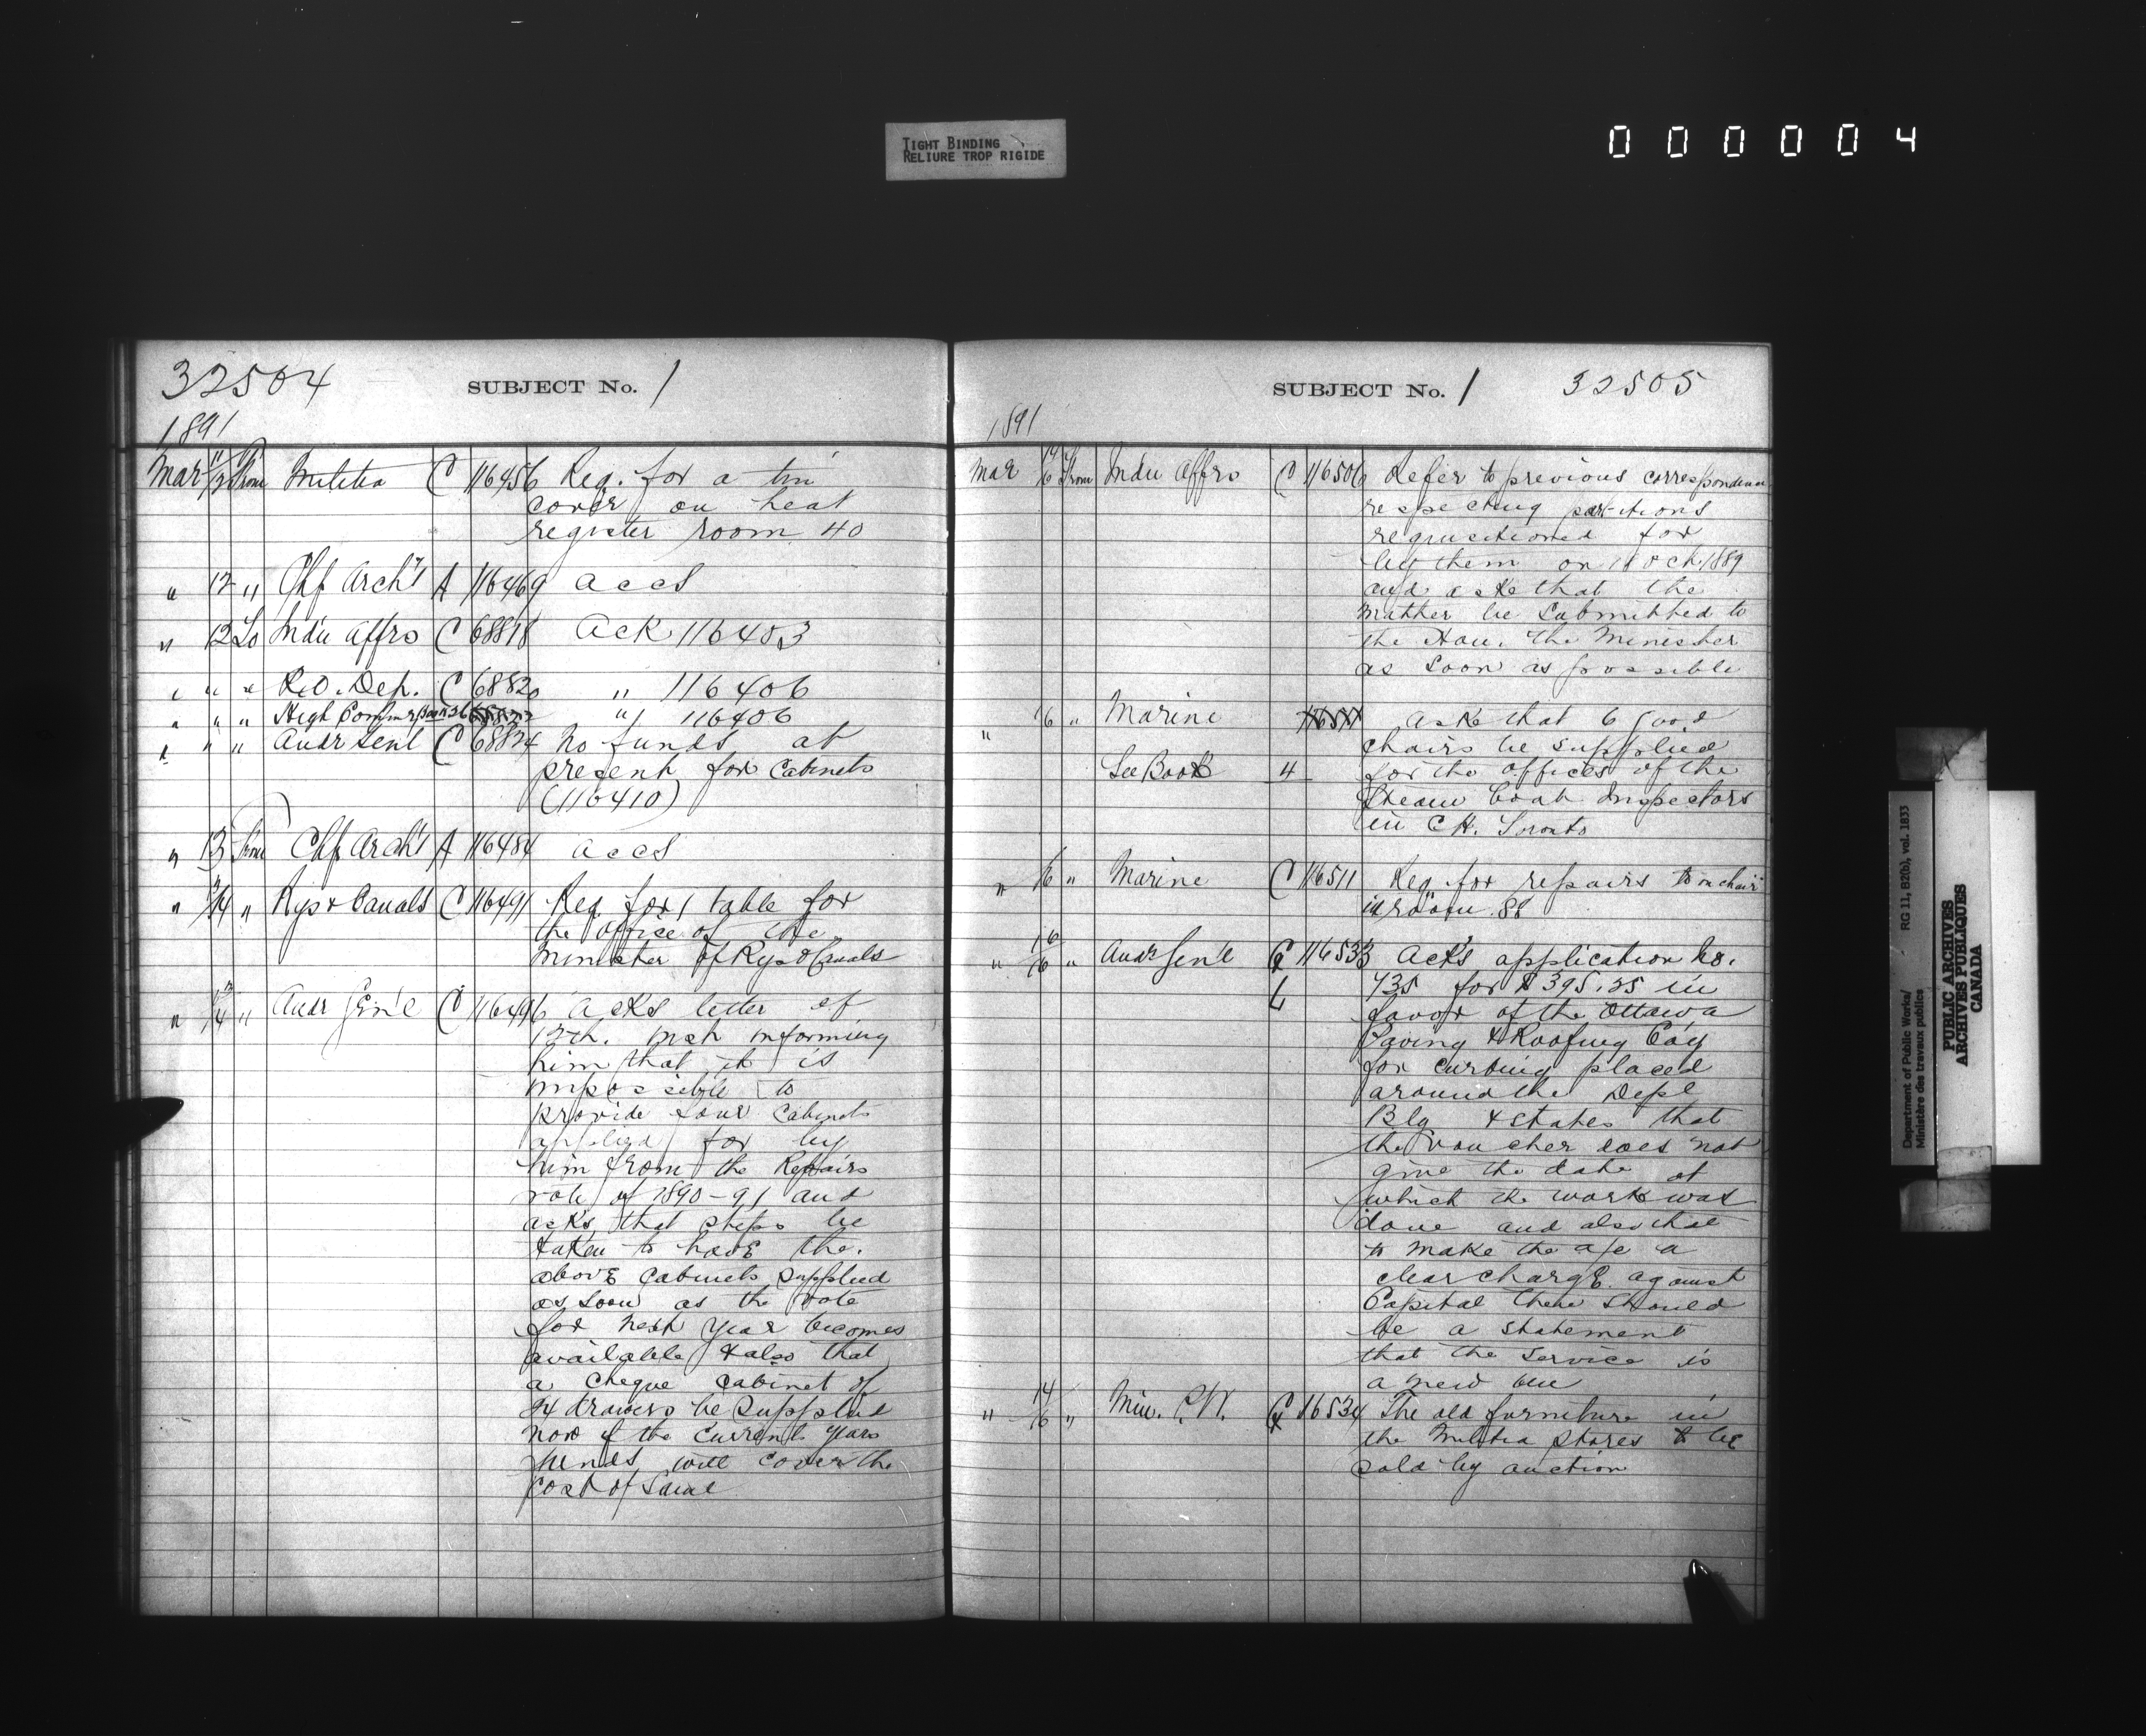 TIGHT BINDING
RELIURE TROP RIGIDE
000004
32504 SUBJECT No. 1
1891
Mar 11/12 From Militia C 116456 Req. for a tin
cover on heat
register room 40
" 12 " Chf Arch't A 116469 accs
" 12 To Indn Affrs C 68818 Ack 116403
" " " P.O. Dep. C 68820 " 116406
" " " High Commr Book 26 " 116406
" " " Audr Genl C 68824 No funds at
present for Cabinets
(116410)
" 13 From Chf Arch't A 116484 accs
" " Rys & Canals C 116491 Req. for 1 table for
the office of the
Minister of Rys & Canals
" 13/14 " Audr Gen'l C 116496 Acks letter of
12th. inst informing
him that it is
impossible to
provide four Cabinets
applied for by
him from the Repairs
vote of 1890-91 and
asks that steps be
taken to have the
above Cabinets supplied
as soon as the vote
for next year becomes
available & also that
a cheque cabinet of
24 drawers be supplied
now if the current years
funds will cover the
cost of same
SUBJECT No. 1 32505
1891
Mar 14/16 From Indn Affrs C 116506 Refer to previous correspondence
respecting partitions
requisitioned for
by them on 18 Oct. 1889
and aske that the
matter be submitted to
the Hon. the Minister
as soon as possible
" 16 " Marine 116511 aske that 6 good
chairs be supplied
See Book 4 for the offices of the
Steam boat Inspectors
in C H. Toronto
" 16 " Marine C 116511 Req. for repairs to a chair
in room 88
" 16/16 " Audr Gen'l 116533 Ack's application No.
L 735 for $395.25 in
favor of the Ottawa
Paving & Roofing Coy
for curbing placed
around the Depl
Blg & states that
the voucher does not
give the date at
which the work was
done and also that
to make the a/c a
clear charge against
Capital there should
be a statement
that the service is
a new one
" 14/16 " Min. P.W. 116534 The old furniture in
the Militia Stores to be
sold by auction
Department of Public Works/ RG 11, B2(b), vol. 1833
Ministère des travaux publics
PUBLIC ARCHIVES
ARCHIVES PUBLIQUES
CANADA